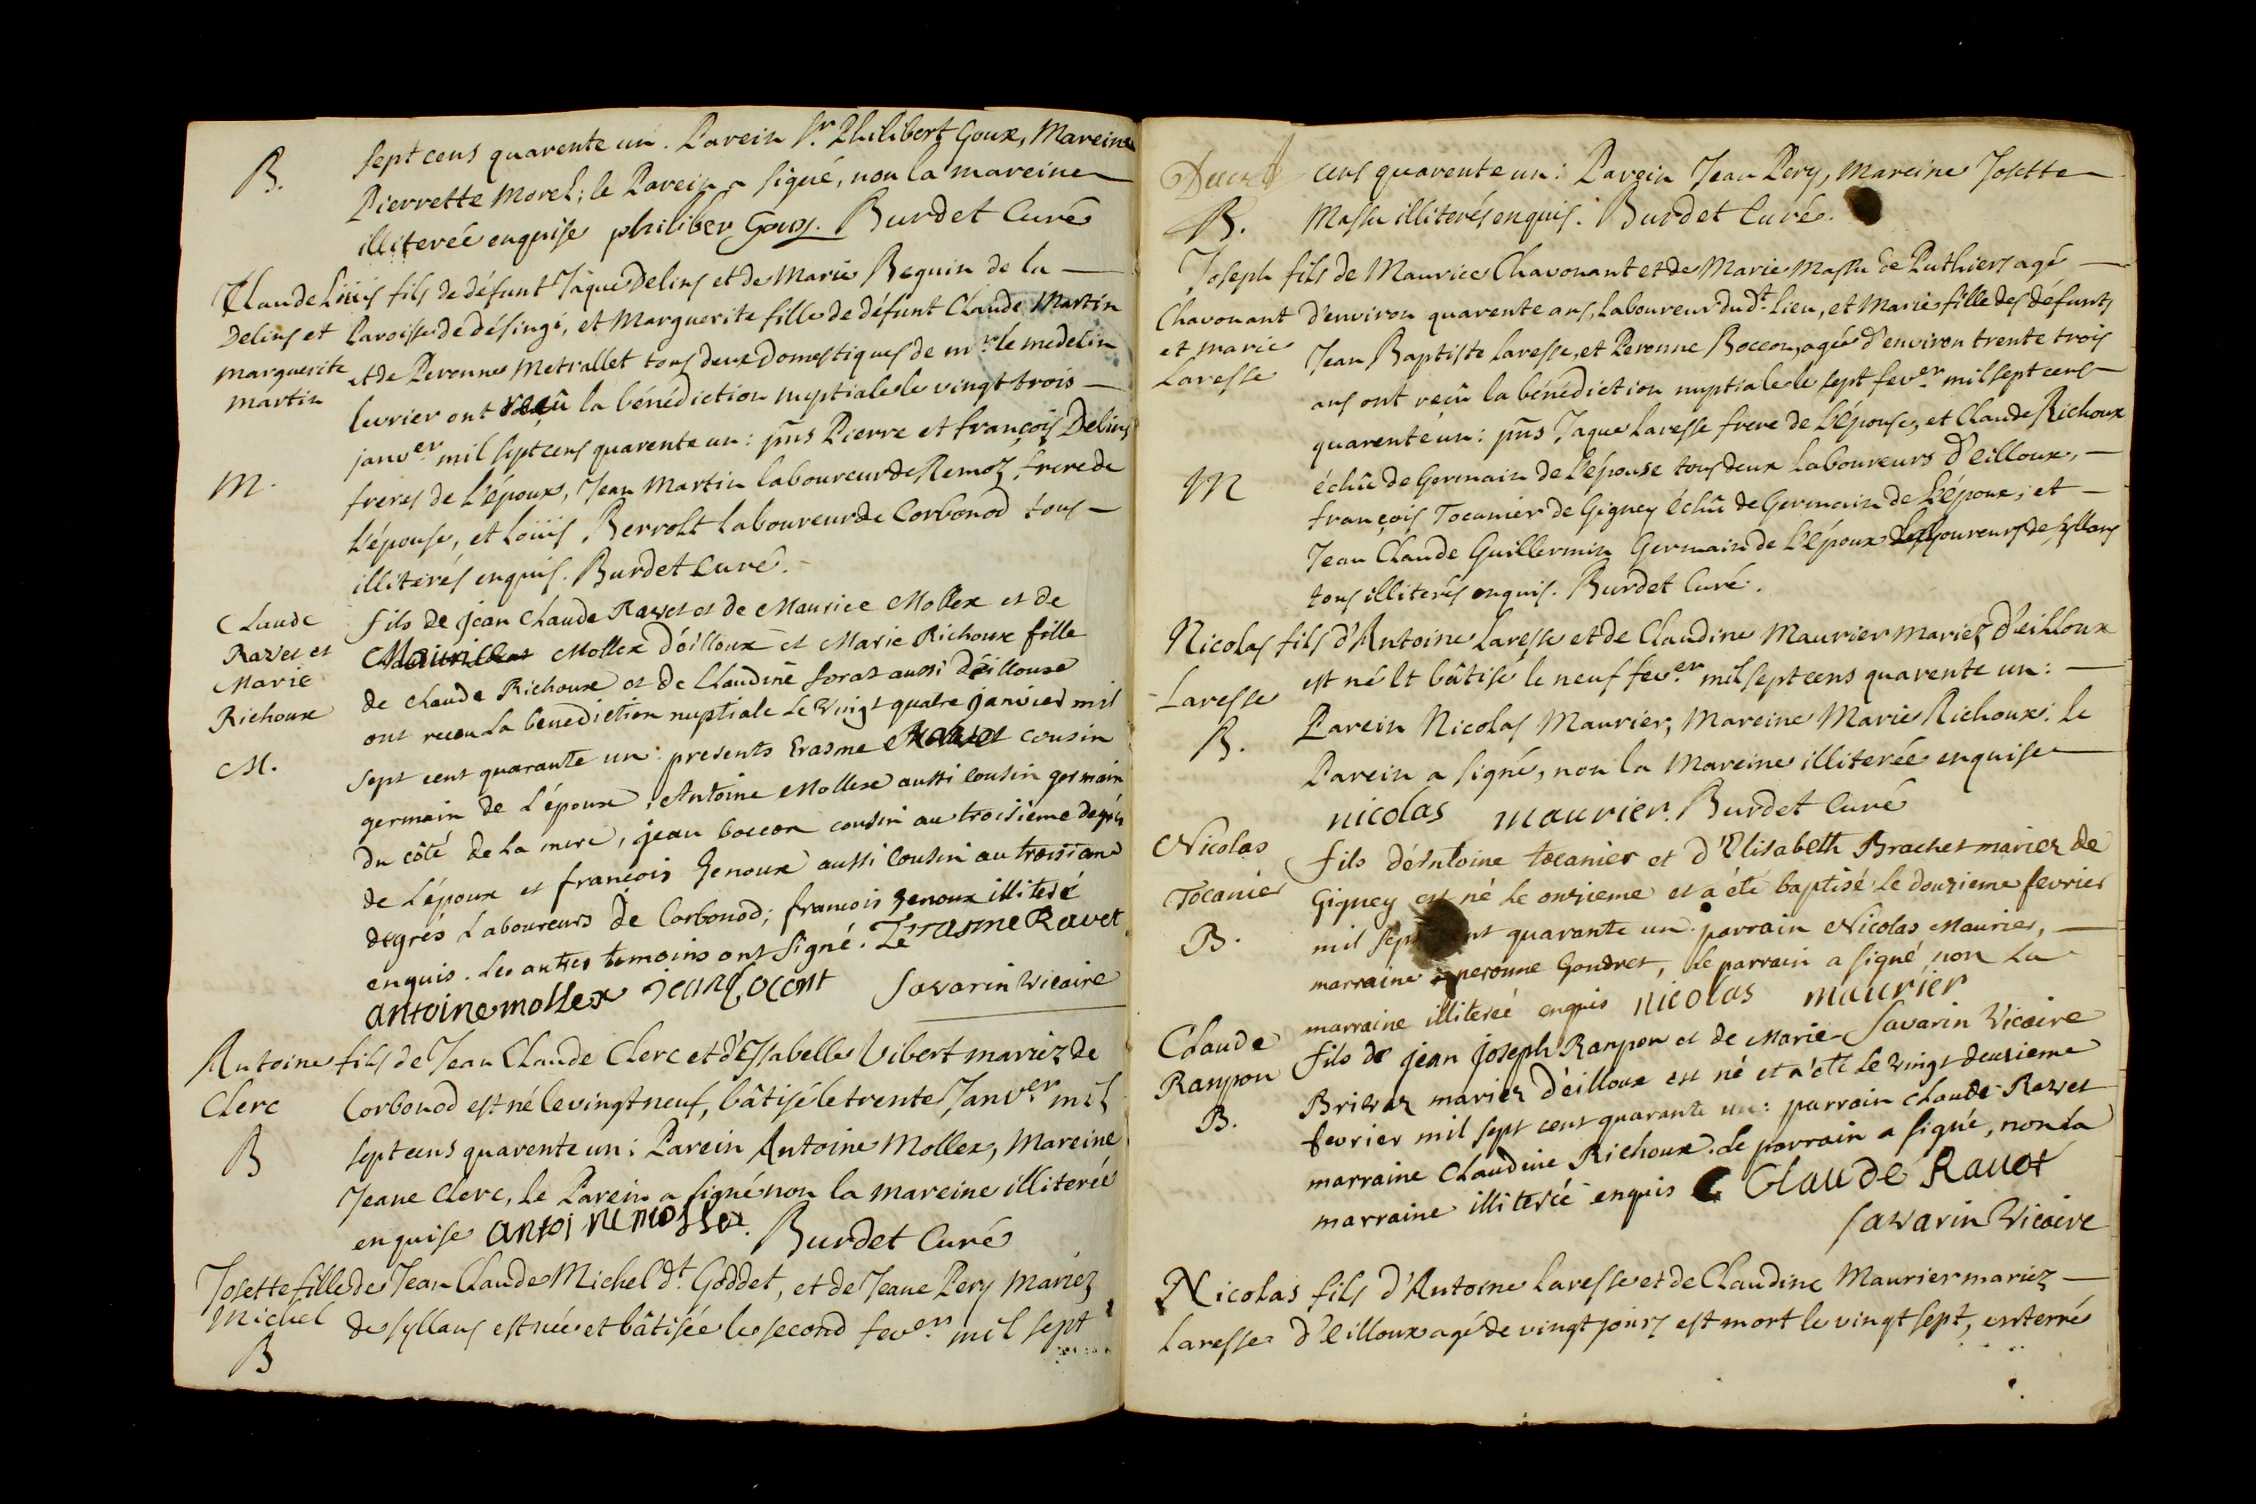 B.
sept cens quarente un. Parein Sr. Philibert Goux, Mareine
Pierrette Morel; le Parein a signé, non la mareine
illiterée enquise philiber Goux. Burdet Curé
Claude Loüis fils de défunt Jaque Delins et de Marie Beguin de la
Delins et Paroisse de désingé, et Marguerite fille de défunt Claude Martin
marguerite et de Peronne Metrallet tous deux domestiques de mr. le medecin
martin
levrier ont reçû la bénédiction nuptiale le vingt trois
janver mil sept cens quarente un: pnts Pierre et françois Delins
M.
freres de L'époux, Jean Martin laboureur de Remoz, frere de
L'épouse, et Loüis Berrolt laboureur de Corbonod tous
illiterés enquis. Burdet Curé.
Claude fils de jean Claude Ravet et de Maurice Mollex et de
Ravet et Mollex d'éilloux et Marie Richoux fille
Marie de claude Richoux et de Claudine Sorat aussi d'éilloux
Richoux ont receu la benediction nuptiale Le vingt quatre janvier mil
M. sept cent quarante un: presents Erasme Ravet cousin
germain de L'époux, Antoine Mollex aussi cousin germain
du côté de la mere, jean boccon cousin au troisieme degrés
de L'époux et francois Genoux aussi Cousin au troisieme
degrés Laboureurs de Corbonod; francois genoux illiteré
enquis. Les autres temoins ont signé. Erasme Ravet
antoine mollex jean bocont Savarin Vicaire
Antoine fils de Jean Claude Clerc et d'Essabelle Vibert mariez de
Clerc Corbonod est né le vingt neuf, bâtisé le trente Janver mil
B sept cens quarente un: Parein Antoine Mollex, Mareine
Jeane Clerc, le Parein a signé non la mareine illiterée
enquise antoine mollex. Burdet Curé
Josette fille de Jean Claude Michel dt. Goddet, et de Jeane Pery Mariéz
Michel de syllans est née et bâtisée le second fever. mil sept
B
B.
cens quarente un: Parein Jean Pery, Mareine Josette
Massu illiterés enquis. Burdet Curé.
Joseph fils de Maurice Chavonant et de Marie Massu de Puthiers agé
Chavonant d'environ quarente ans, laboureur dudt. lieu, et Marie fille des défunts
et marie Jean Baptiste Laresse, et Peronne Boccon, agée d'environ trente trois
Laresse
ans ont reçû la bénédiction nuptiale le sept fever. mil sept cens
quarente un: pnts Jaque Laresse frere de L'épouse, et Claude Richoux
M
échû de Germain de L'épouse tous deux laboureurs d'eilloux,
françois Tocanier de Gigney échû de Germain de L'époux, et
Jean Claude Guillermin Germain de L'époux Laboureurs de syllans
tous illiterés enquis. Burdet Curé.
Nicolas fils d'Antoine Laresse et de Claudine Maurier mariez d'eilloux
Laresse est né et bâtisé le neuf fever. mil sept cens quarente un:
B. Parein Nicolas Maurier, Mareine Marie Richoux: le
Parein a signé, non la Mareine illiterée enquise
nicolas maurier. Burdet Curé
Nicolas fils d'Antoine tocanier et d'Elisabeth Brachet mariez de
Tocanier Gigney est né le onzieme et a été baptisé le douzieme fevrier
B. mil sept cent quarante un. parrain Nicolas Maurier,
marraine peronne Gondret, le parrain a signé non la
marraine illiterée enquis nicolas maurier
Claude fils de jean joseph Ranpon et de Marie Savarin Vicaire
Ranpon Brivaz mariez d'éilloux est né et a été le vingt deuxieme
B. fevrier mil sept cent quarante un: parrain claude Ravet
marraine Claudine Richoux. le parrain a signé, non la
marraine illiterée enquis Claude Ravet
Savarin Vicaire
Nicolas fils d'Antoine Laresse et de Claudine Maurier mariez
Laresse d'eilloux agé de vingt jours est mort le vingt sept, enterré